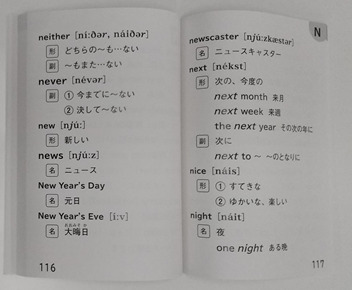 neither [níːðər, náiðər]
形 どちらの～も…ない
副 ～もまた…ない
never [névər]
副 ① 今までに～ない
② 決して～ない
new [njúː]
形 新しい
news [njúːz]
名 ニュース
New Year's Day
名 元日
New Year's Eve [íːv]
おおみそか
名 大晦日
116
N
newscaster [njúːzkæstər]
名 ニュースキャスター
next [nékst]
形 次の、今度の
next month 来月
next week 来週
the next year その次の年に
副 次に
next to ～ ～のとなりに
nice [náis]
形 ① すてきな
② ゆかいな、楽しい
night [náit]
名 夜
one night ある晩
117